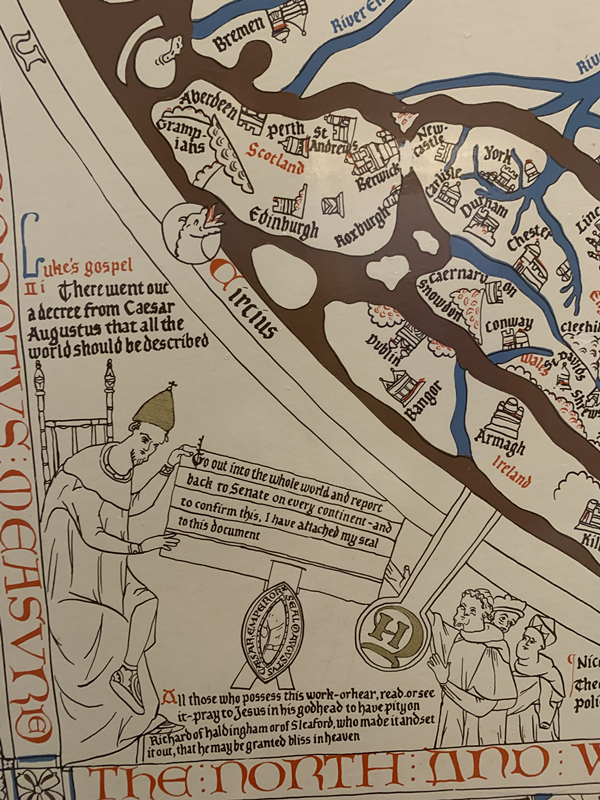 Bremen
River El
Riv
Aberdeen
Gramp-
ians
Perth
St
Andrews
Scotland
Berwick
Edinburgh
Roxburgh
New-
castle
York
Carlisle
Durham
Chester
Linc
Caernarvon
Snowdon
Conway
Cleehill
Wales
St Davids
Shrews
Dublin
Bangor
Armagh
Ireland
Kil
Circius
Luke's gospel
II i There went out
a decree from Caesar
Augustus that all the
world should be described
Go out into the whole world and report
back to Senate on every continent-and
to confirm this, I have attached my seal
to this document
SEAL OF AUGUSTUS CAESAR EMPEROR
H
All those who possess this work-or hear, read, or see
it-pray to Jesus in his godhead to have pity on
Richard of Haldingham or of Sleaford, who made it and set
it out, that he may be granted bliss in heaven
Nico
Theo
poli
MEASVRE
THE : NORTH : AND : W